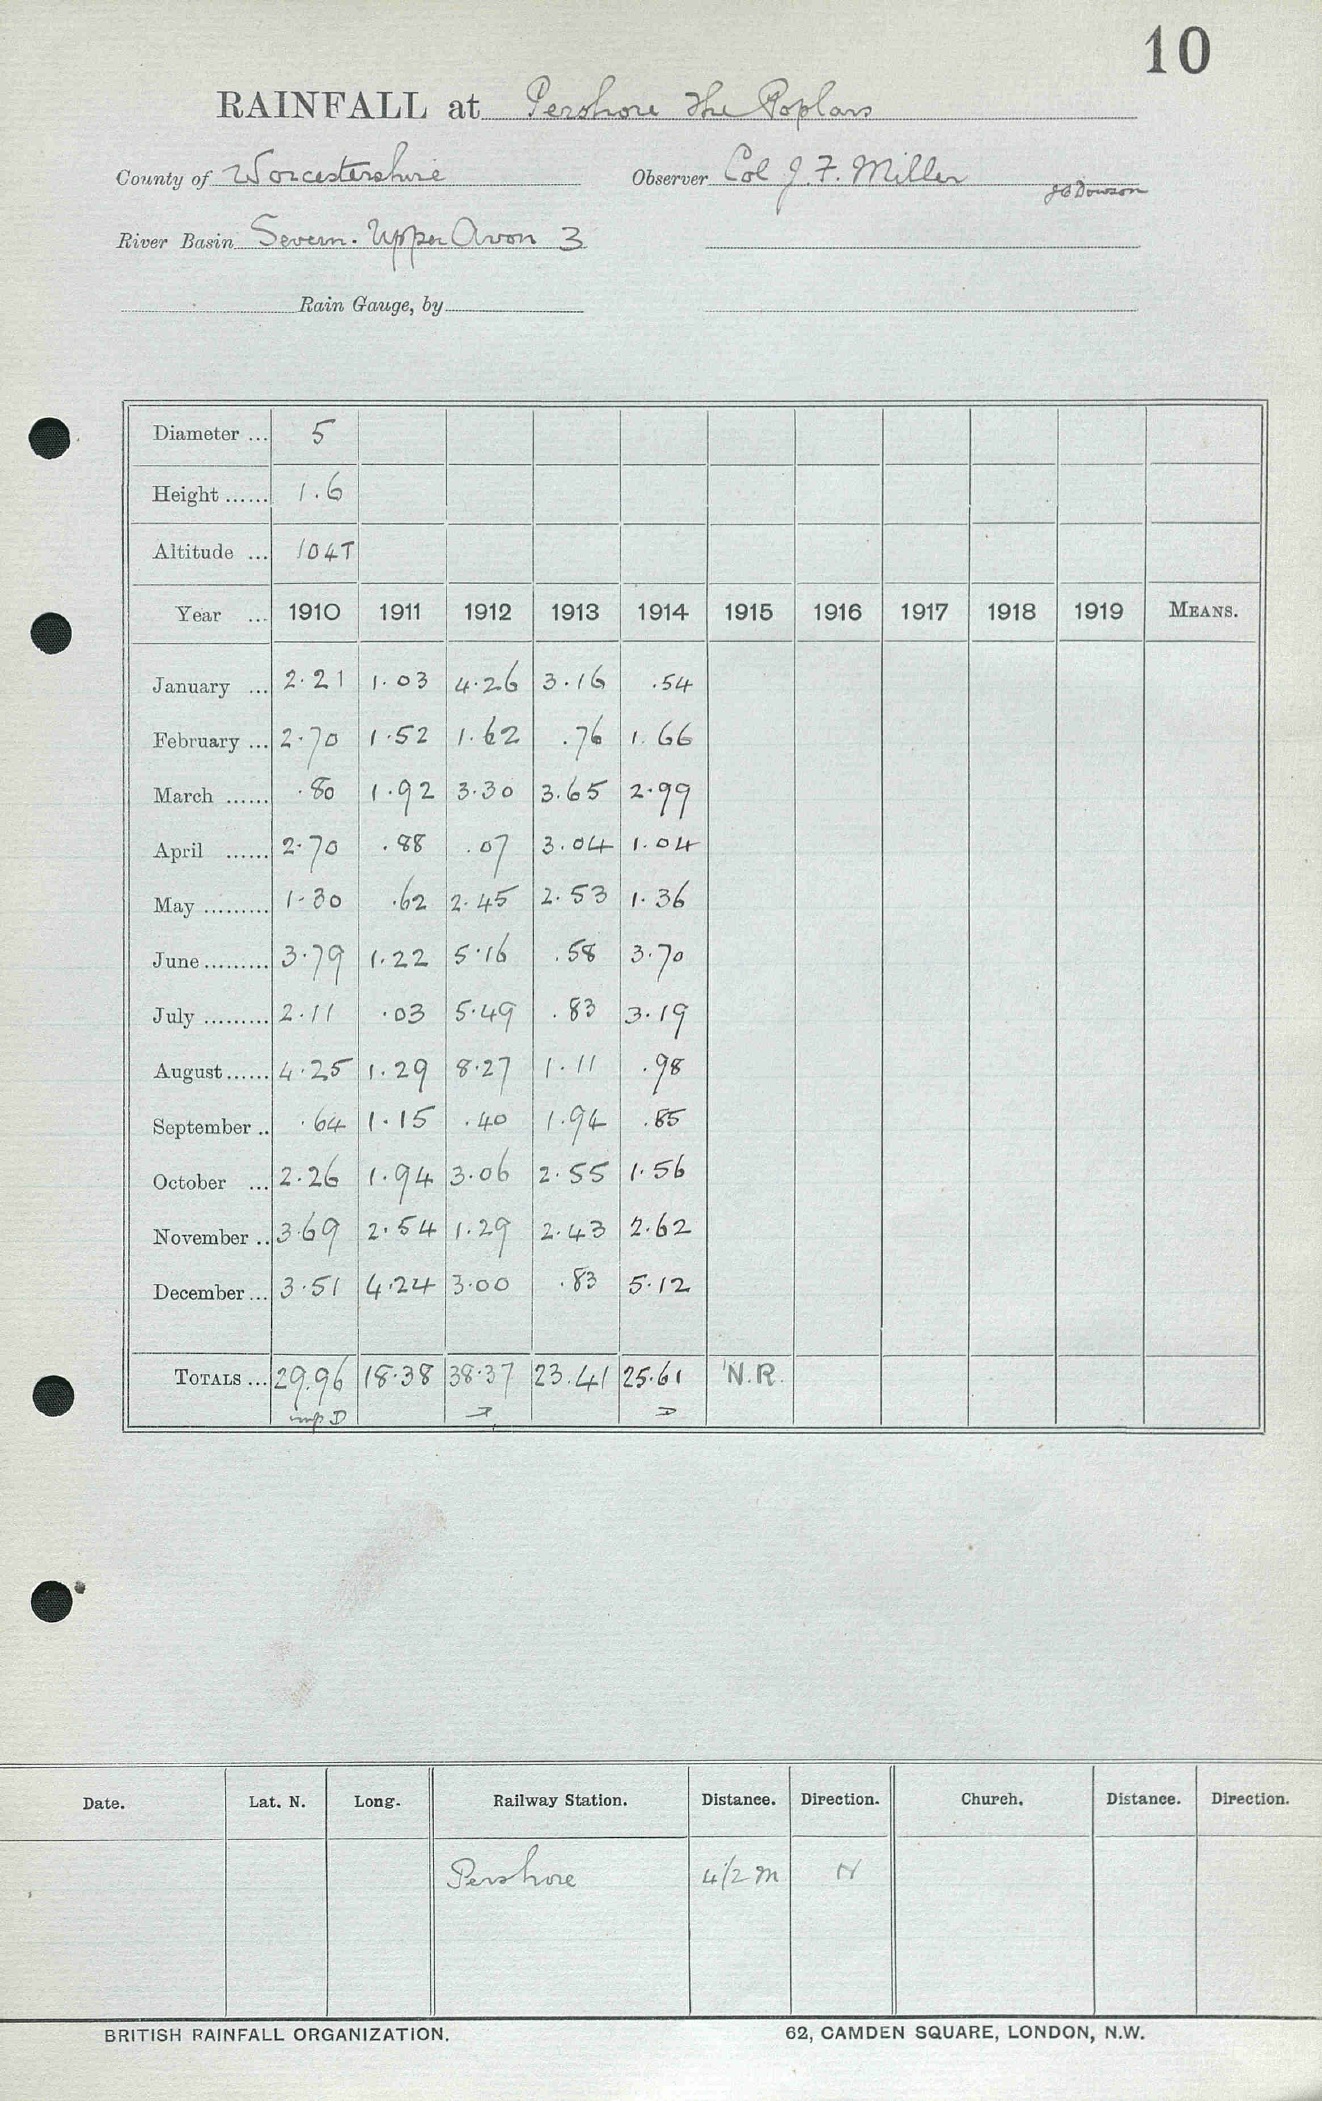 10
RAINFALL at Pershore The Poplars
County of Worcestershire Observer Col J. F. Miller
J G Dowson
River Basin Severn. Upper Avon 3
Rain Gauge, by
Diameter ... 5
Height ...... 1.6
Altitude ... 104T
Year ... 1910 1911 1912 1913 1914 1915 1916 1917 1918 1919 MEANS.
January ... 2.21 1.03 4.26 3.16 .54
February ... 2.70 1.52 1.62 .76 1.66
March ...... .80 1.92 3.30 3.65 2.99
April ...... 2.70 .88 .07 3.04 1.04
May ......... 1.30 .62 2.45 2.53 1.36
June ......... 3.79 1.22 5.16 .58 3.70
July ......... 2.11 .03 5.49 .83 3.19
August ...... 4.25 1.29 8.27 1.11 .98
September .. .64 1.15 .40 1.94 .85
October ... 2.26 1.94 3.06 2.55 1.56
November .. 3.69 2.54 1.29 2.43 2.62
December ... 3.51 4.24 3.00 .83 5.12
TOTALS ... 29.96 18.38 38.37 23.41 25.61 N.R.
Date. Lat. N. Long. Railway Station. Distance. Direction. Church. Distance. Direction.
Pershore 4 1/2 m N
BRITISH RAINFALL ORGANIZATION. 62, CAMDEN SQUARE, LONDON, N.W.